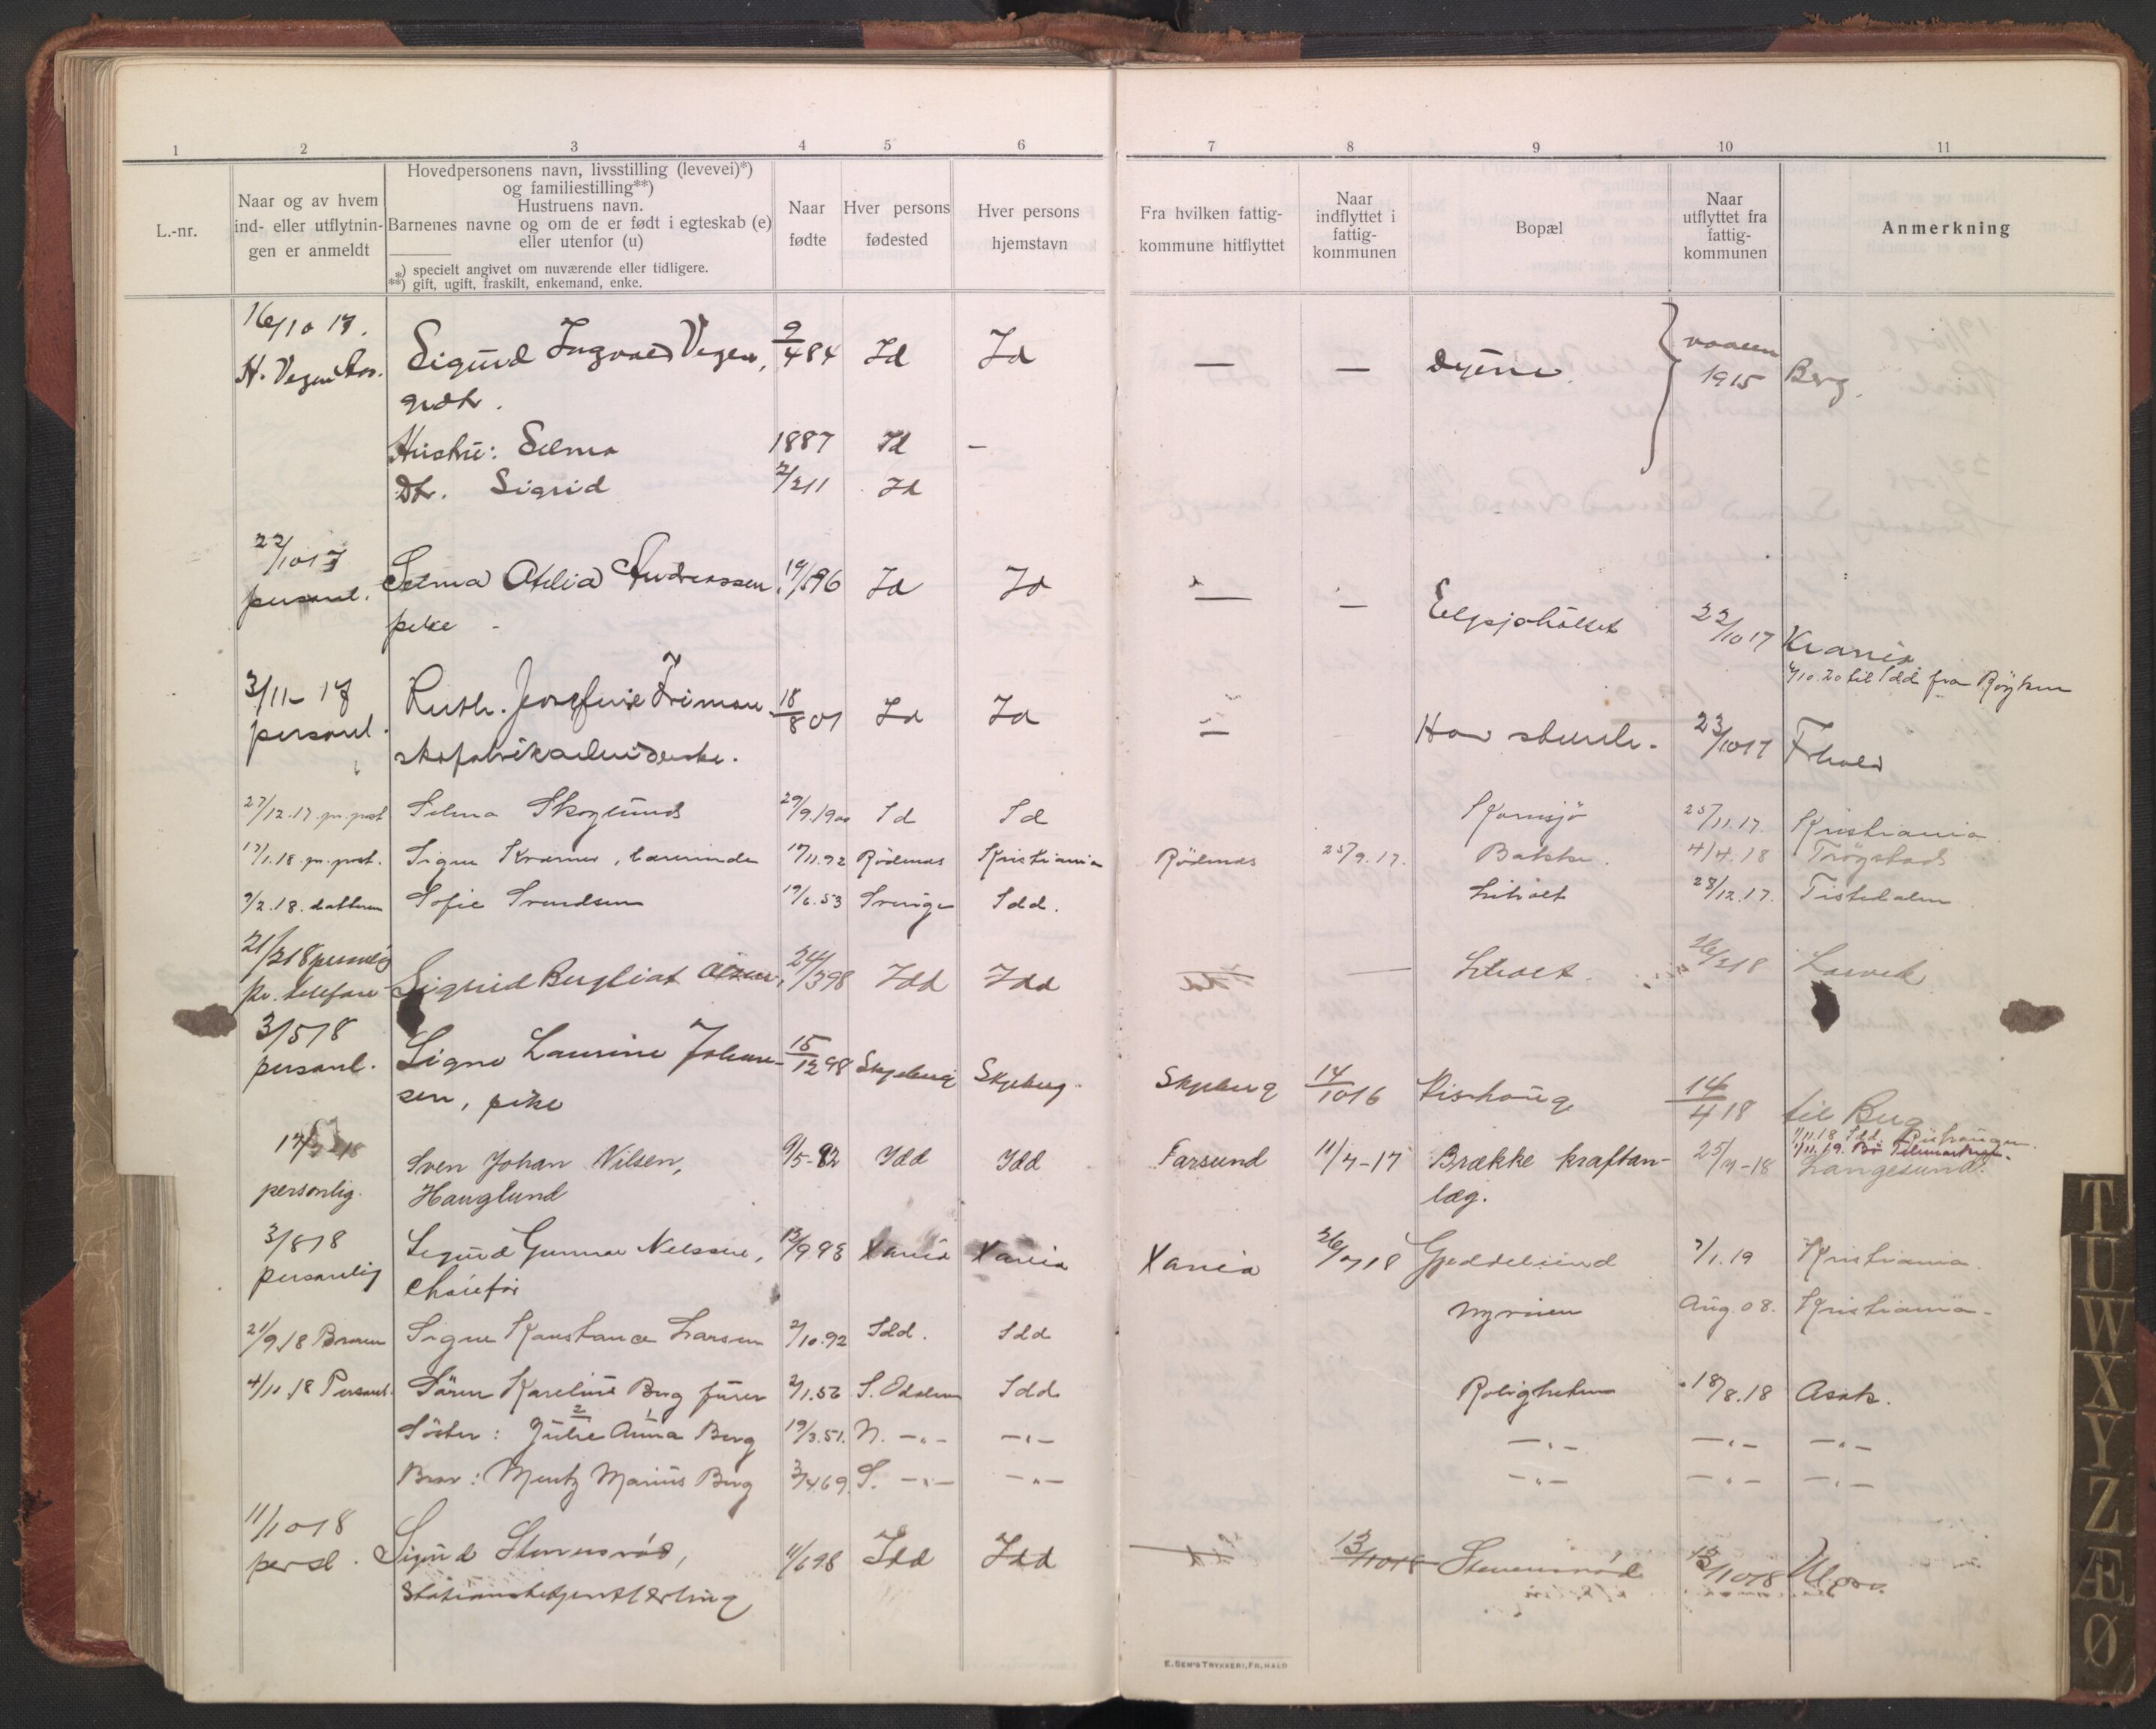 1 2 3 4 5 6 7 8 9 10 11
L.-nr.
Naar og av hvem
ind- eller utflytnin-
gen er anmeldt
Hovedpersonens navn, livsstilling (levevei)*)
og familiestilling**)
Hustruens navn.
Barnenes navne og om de er født i egteskab (e)
eller utenfor (u)
*) specielt angivet om nuværende eller tidligere.
**) gift, ugift, fraskilt, enkemand, enke.
Naar
fødte
Hver persons
fødested
Hver persons
hjemstavn
Fra hvilken fattig-
kommune hitflyttet
Naar
indflyttet i
fattig-
kommunen
Bopæl
Naar
utflyttet fra
fattig-
kommunen
Anmerkning
16/10 17. Sigurd Ingvald Vegen, 9/4 84 Id Id — — vaaren 1915 Berg.
H. Vegen
Hustru: Selma 1887 Id —
Dtr. Sigrid 7/2 11 Id
22/10 17 Selma Otelia Andreassen, 19/1 96 Id Id — — 22/10 17 Krania
personl. pike -
10.20 til Idd fra Røyken
3/11-17 Ruth Josefine 18/8 01 Id Id — 23/10 17 Fhald
personl. skofabrikarbeiderske.
27/12.17. pr. post Selma Skoglund 29/9.1900 Id Id Kornsjø 25/11.17. Kristiania
17/1.18. pr. post. Signe Kramer, lærerinde 17/11.92 Rødenes Kristiania Rødenes 25/9.17. Bakke. 4/4.18 Trøgstad
9/2.18. datteren Sofie Svendsen 19/6.53 Sverige Idd. Liholt 28/12.17. Tistedalen
21/3 18 personlig Sigrid 24/3 98 Idd Idd — Liholt. Larvik
pr. telefon
3/5 18 Signe Laurine Johan- 15/12 98 Skjeberg Skjeberg. Skjeberg 14/10 16 Rishaug 14/4 18 til Berg
personl. sen, pike
1/11.18 Idd. Rishaugen.
1/11.19. Bø Telemarken.
Sven Johan Nilsen, 9/5-92 Idd Idd Farsund 11/7-17 Brække kraftan- 25/7-18 Langesund.
personlig. Hauglund læg.
3/8 18 Sigurd Gunnar Nelssen, 13/9 98 Xania Xania Xania 26/7 18 Gjeddelund 7/1.19 Kristiania.
personlig Chauffør
21/9.18 Broren Signe Konstance Larsen 2/10.92 Idd. Idd Aug. 08. Kristiania -
4/11.18 Personl. Søren Kareline Berg 2/1.56 S. Odalen Idd Roligheten 18/8.18 Asak.
Søster: Julie 2 Anna 1 Berg 19/3.51. N. —„— —„— —„— —„— —„—
Bror: Mentz Marius Berg 3/4.69. S. —„— —„— —„— —„— —„—
11/10 18 Sigurd Stenersrød, 11/6 98 Idd Idd 13/10 18 Stenersrød 13/10 18
persl. Stationsbetjentlærling
E. SEM'S TRYKKERI, FR.HALD
T
U
W
X
Y
Z
Æ
Ø